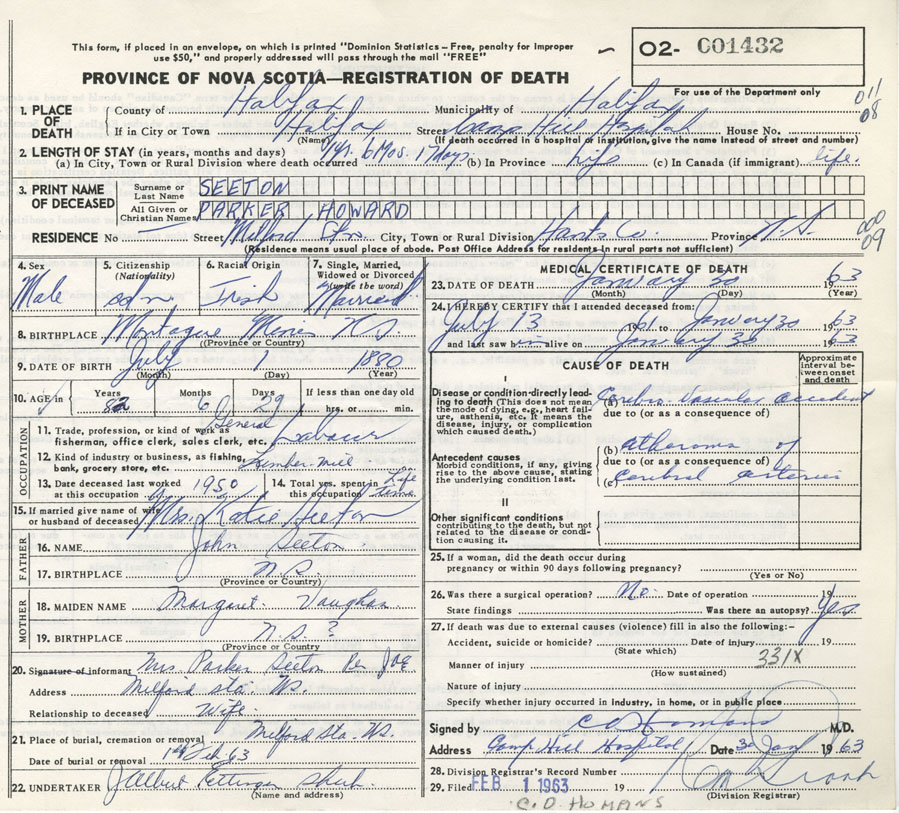 This form, if placed in an envelope, on which is printed "Dominion Statistics – Free, penalty for improper
use $50," and properly addressed will pass through the mail "FREE"
O2- 001432
PROVINCE OF NOVA SCOTIA—REGISTRATION OF DEATH
For use of the Department only
011
08
1. PLACE OF DEATH
County of Halifax Municipality of Halifax
If in City or Town Halifax Street Camp Hill Hospital House No.
(Name) (If death occurred in a hospital or institution, give the name instead of street and number)
2. LENGTH OF STAY (in years, months and days)
(a) In City, Town or Rural Division where death occurred 1 yr. 6 Mos. 17 days (b) In Province life (c) In Canada (if immigrant) life.
3. PRINT NAME OF DECEASED
Surname or Last Name SEETON
All Given or Christian Names PARKER HOWARD
000
09
RESIDENCE No Street Milford Stn. City, Town or Rural Division Hants Co. Province N.S.
(Residence means usual place of abode. Post Office Address for residents in rural parts not sufficient)
4. Sex Male
5. Citizenship (Nationality) Cdn.
6. Racial Origin Irish
7. Single, Married, Widowed or Divorced (write the word) Married
8. BIRTHPLACE Montague Mines NS
(Province or Country)
9. DATE OF BIRTH July 1 1880
(Month) (Day) (Year)
10. AGE in Years 82 Months 6 Days 29 If less than one day old hrs. or min.
OCCUPATION
11. Trade, profession, or kind of work as fisherman, office clerk, sales clerk, etc. General Labour
12. Kind of industry or business, as fishing, bank, grocery store, etc. Lumber mill
13. Date deceased last worked at this occupation 1950
14. Total yrs. spent in this occupation Life time
15. If married give name of wife or husband of deceased Mrs. Katie Seeton
FATHER
16. NAME John Seeton
17. BIRTHPLACE N.S.
(Province or Country)
MOTHER
18. MAIDEN NAME Margaret Vaughan
19. BIRTHPLACE N.S. ?
(Province or Country)
20. Signature of informant Mrs. Parker Seeton Per
Address Milford Sta. NS.
Relationship to deceased Wife
21. Place of burial, cremation or removal Milford Sta. NS.
Date of burial or removal 1st Feb 63
22. UNDERTAKER Ettinger
(Name and address)
MEDICAL CERTIFICATE OF DEATH
23. DATE OF DEATH January 30 19 63
(Month) (Day) (Year)
24. I HEREBY CERTIFY that I attended deceased from:
July 13 1961 to January 30 19 63
and last saw him alive on January 30 19 63
CAUSE OF DEATH
Approximate interval between onset and death
I
Disease or condition directly leading to death (This does not mean the mode of dying, e.g., heart failure, asthenia, etc. It means the disease, injury, or complication which caused death.)
(a) Cerebro Vascular accident
due to (or as a consequence of)
Antecedent causes
Morbid conditions, if any, giving rise to the above cause, stating the underlying condition last.
(b) atheroma of
due to (or as a consequence of)
(c) cerebral arteries
II
Other significant conditions
contributing to the death, but not related to the disease or condition causing it.
25. If a woman, did the death occur during
pregnancy or within 90 days following pregnancy?
(Yes or No)
26. Was there a surgical operation? No. Date of operation 19
State findings Was there an autopsy? Yes
27. If death was due to external causes (violence) fill in also the following:-
Accident, suicide or homicide? Date of injury 19
(State which)
331X
Manner of injury
(How sustained)
Nature of injury
Specify whether injury occurred in industry, in home, or in public place
Signed by C O Homans M.D.
Address Camp Hill Hospital Date 30 Jan 19 63
28. Division Registrar's Record Number
29. Filed FEB 1 1963 19
(Division Registrar)
C. O. HOMANS